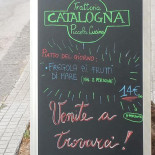 Trattoria
CATALOGNA
Piccola Cucina
PIATTO DEL GIORNO:
FREGOLA AI FRUTTI
DI MARE
(MIN 2 PERSONE)
14€
Venite a
Trovarci!